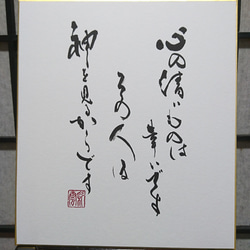 心の清いものは
幸いです
その人は
神を見るからです